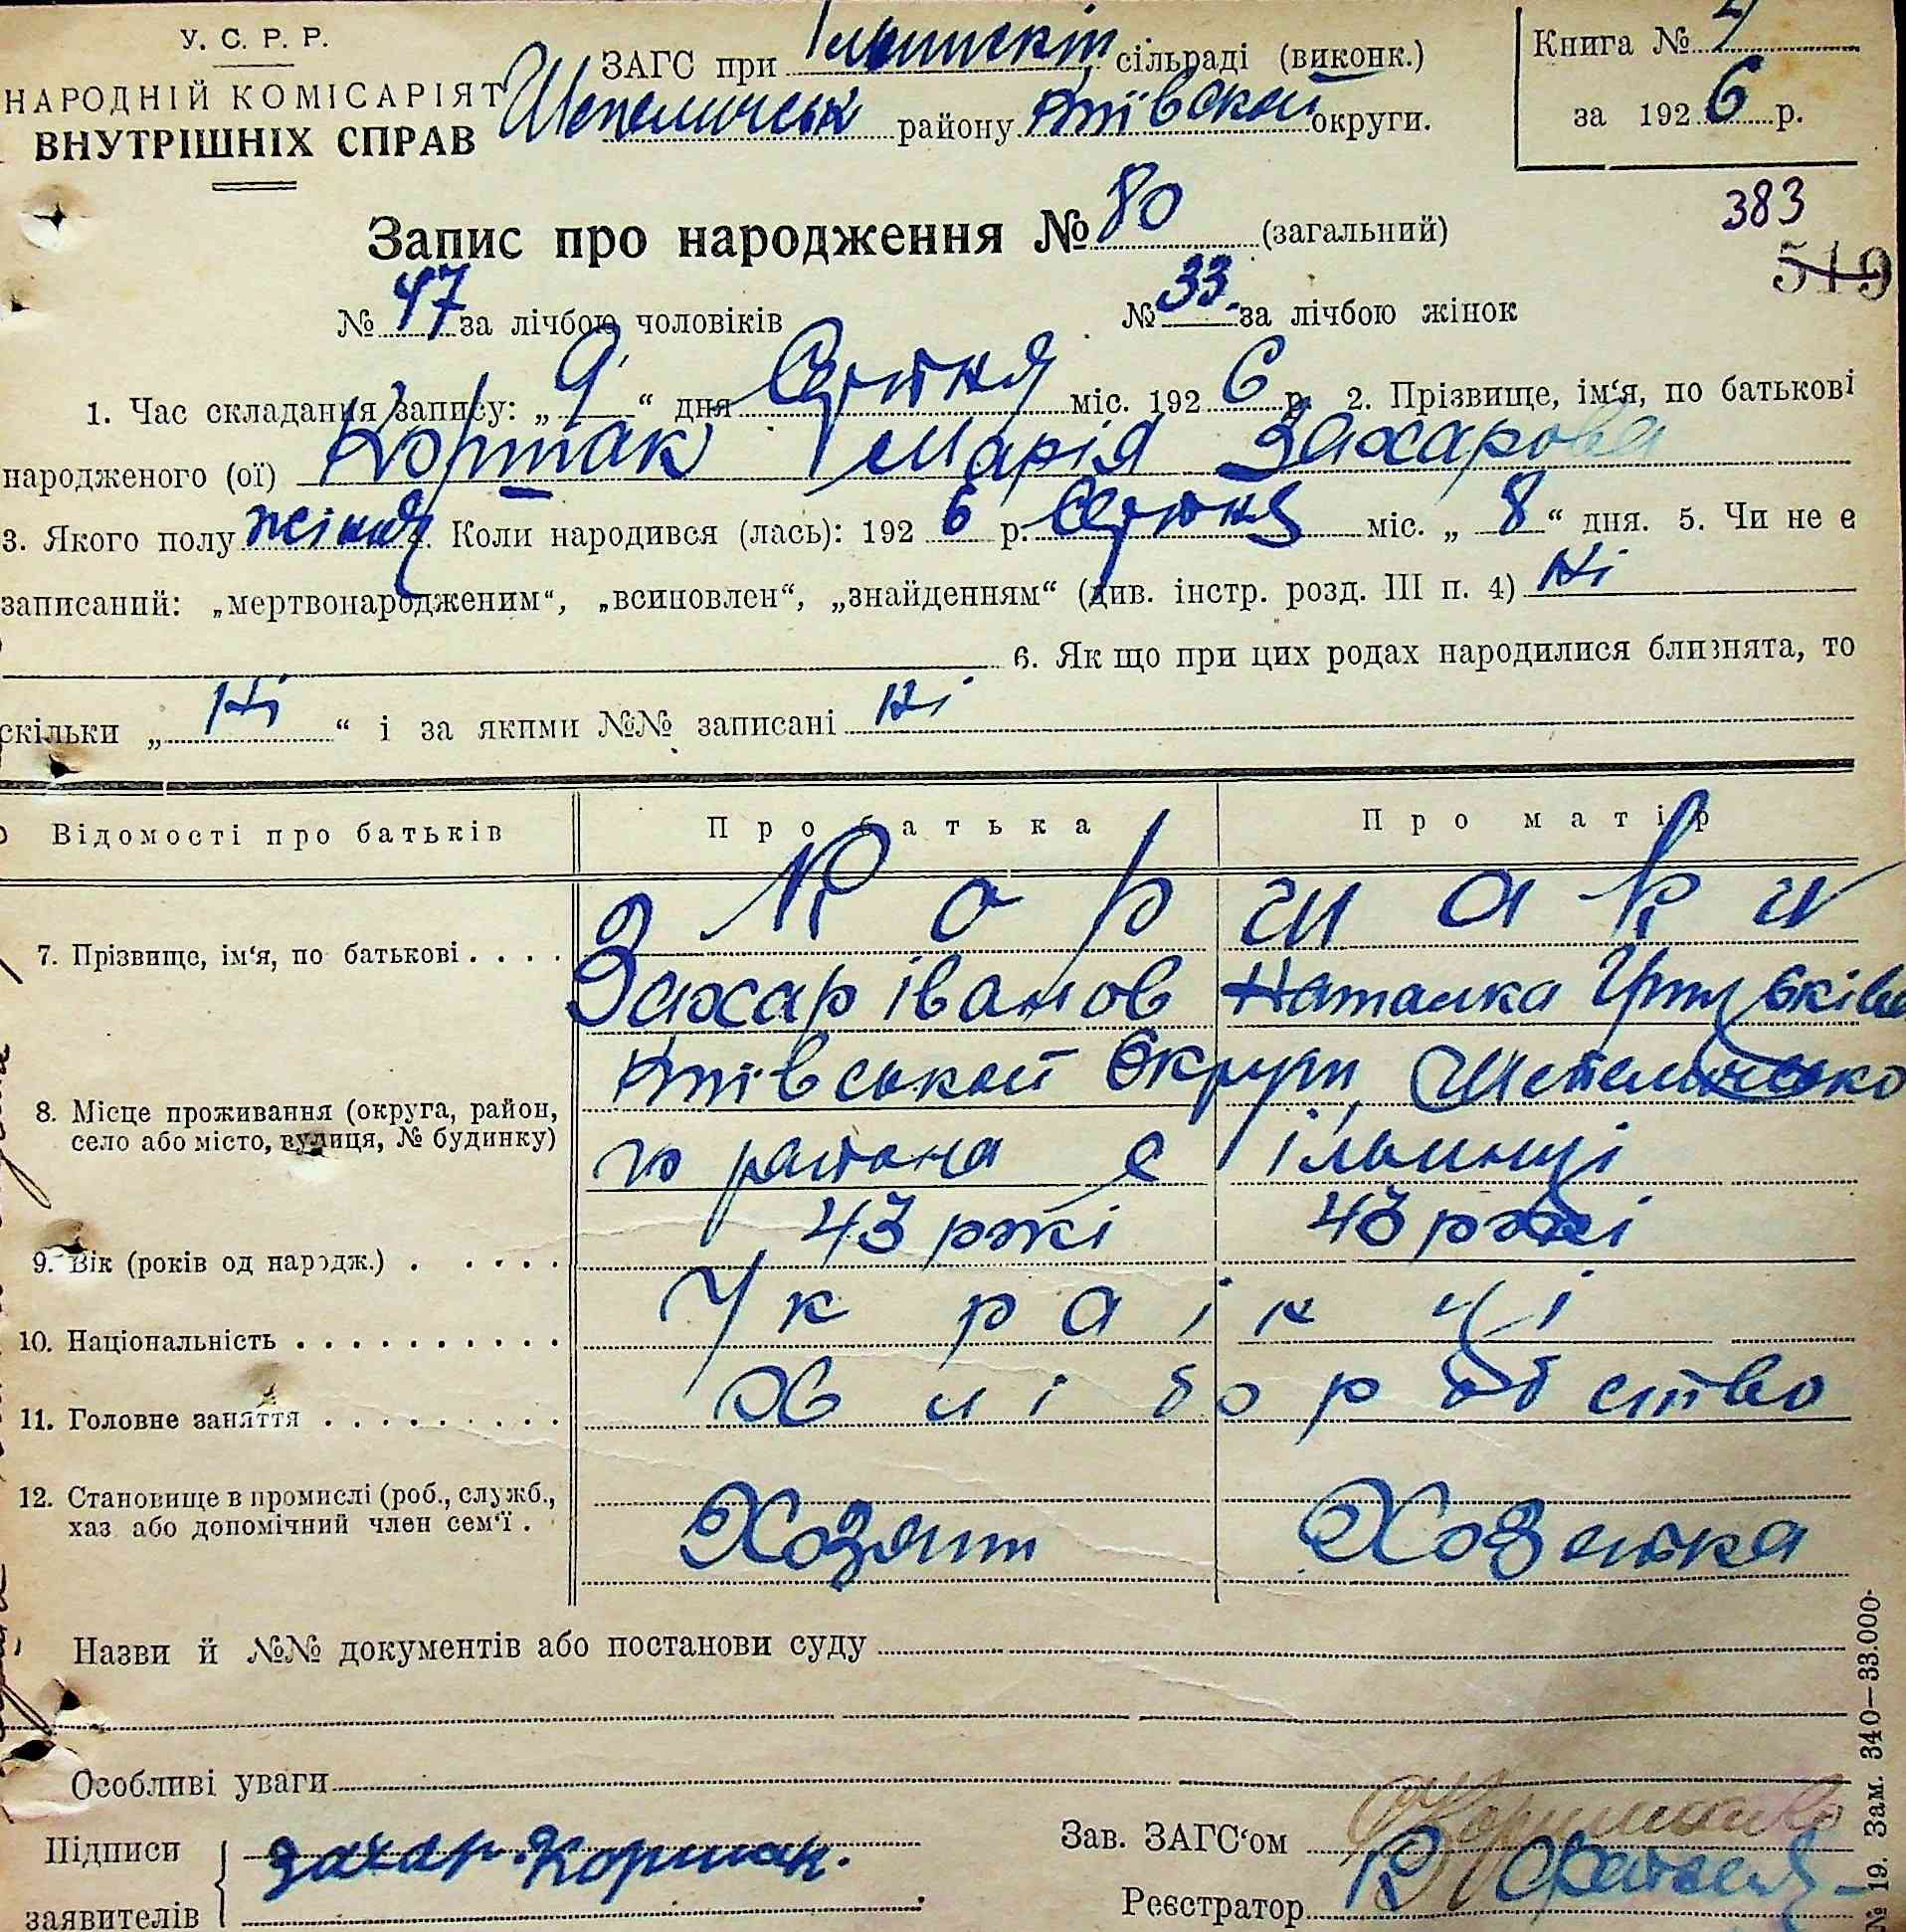 У. С. Р. Р.
НАРОДНІЙ КОМІСАРІЯТ
ВНУТРІШНІХ СПРАВ
ЗАГС при сільраді (виконк.)
району Київской округи.
Книга №
за 1926 р.
383
519
Запис про народження № 80 (загальний)
№ 47 за лічбою чоловіків № 33 за лічбою жінок
1. Час складання запису: „ 9 “ дня міс. 1926 р. 2. Прізвище, ім‘я, по батькові
народженого (ої) Коршак Марія Захарова
3. Якого полу Коли народився (лась): 1926 р. міс. „ 8 “ дня. 5. Чи не є
записаний: „мертвонародженим“, „всиновлен“, „знайденням“ (див. інстр. розд. III п. 4) Ні
6. Як що при цих родах народилися близнята, то
скільки „ Ні “ і за якими №№ записані Ні
Відомості про батьків Про батька Про матір
7. Прізвище, ім‘я, по батькові . . . . Коршаки
Захар Іванов Наталка
8. Місце проживання (округа, район, село або місто, вулиця, № будинку) Київської Округи, Шепелицько
го района с Ільинці
9. Вік (років од народж.) . . . . . 43 43
10. Національність . . . . . . . . . . Українці
11. Головне заняття . . . . . . . . . Хліборобство
12. Становище в промислі (роб., служб., хаз або допомічний член сем‘ї . Хозяин Хозяйка
Назви й №№ документів або постанови суду
Особливі уваги
Підписи заявителів Захар. Коршак.
Зав. ЗАГС‘ом
Реєстратор
№ 19. Зам. 340—33.000.